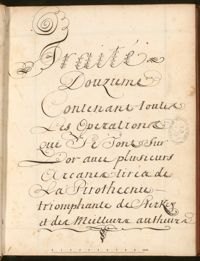 Traité
Douziéme
Contenant toutes
Les Operations
qui Se font Sur
L'or avec plusieurs
Arcanes tirés de
La Pirothecnie
triomphante de
et des Meilleurs autheurs